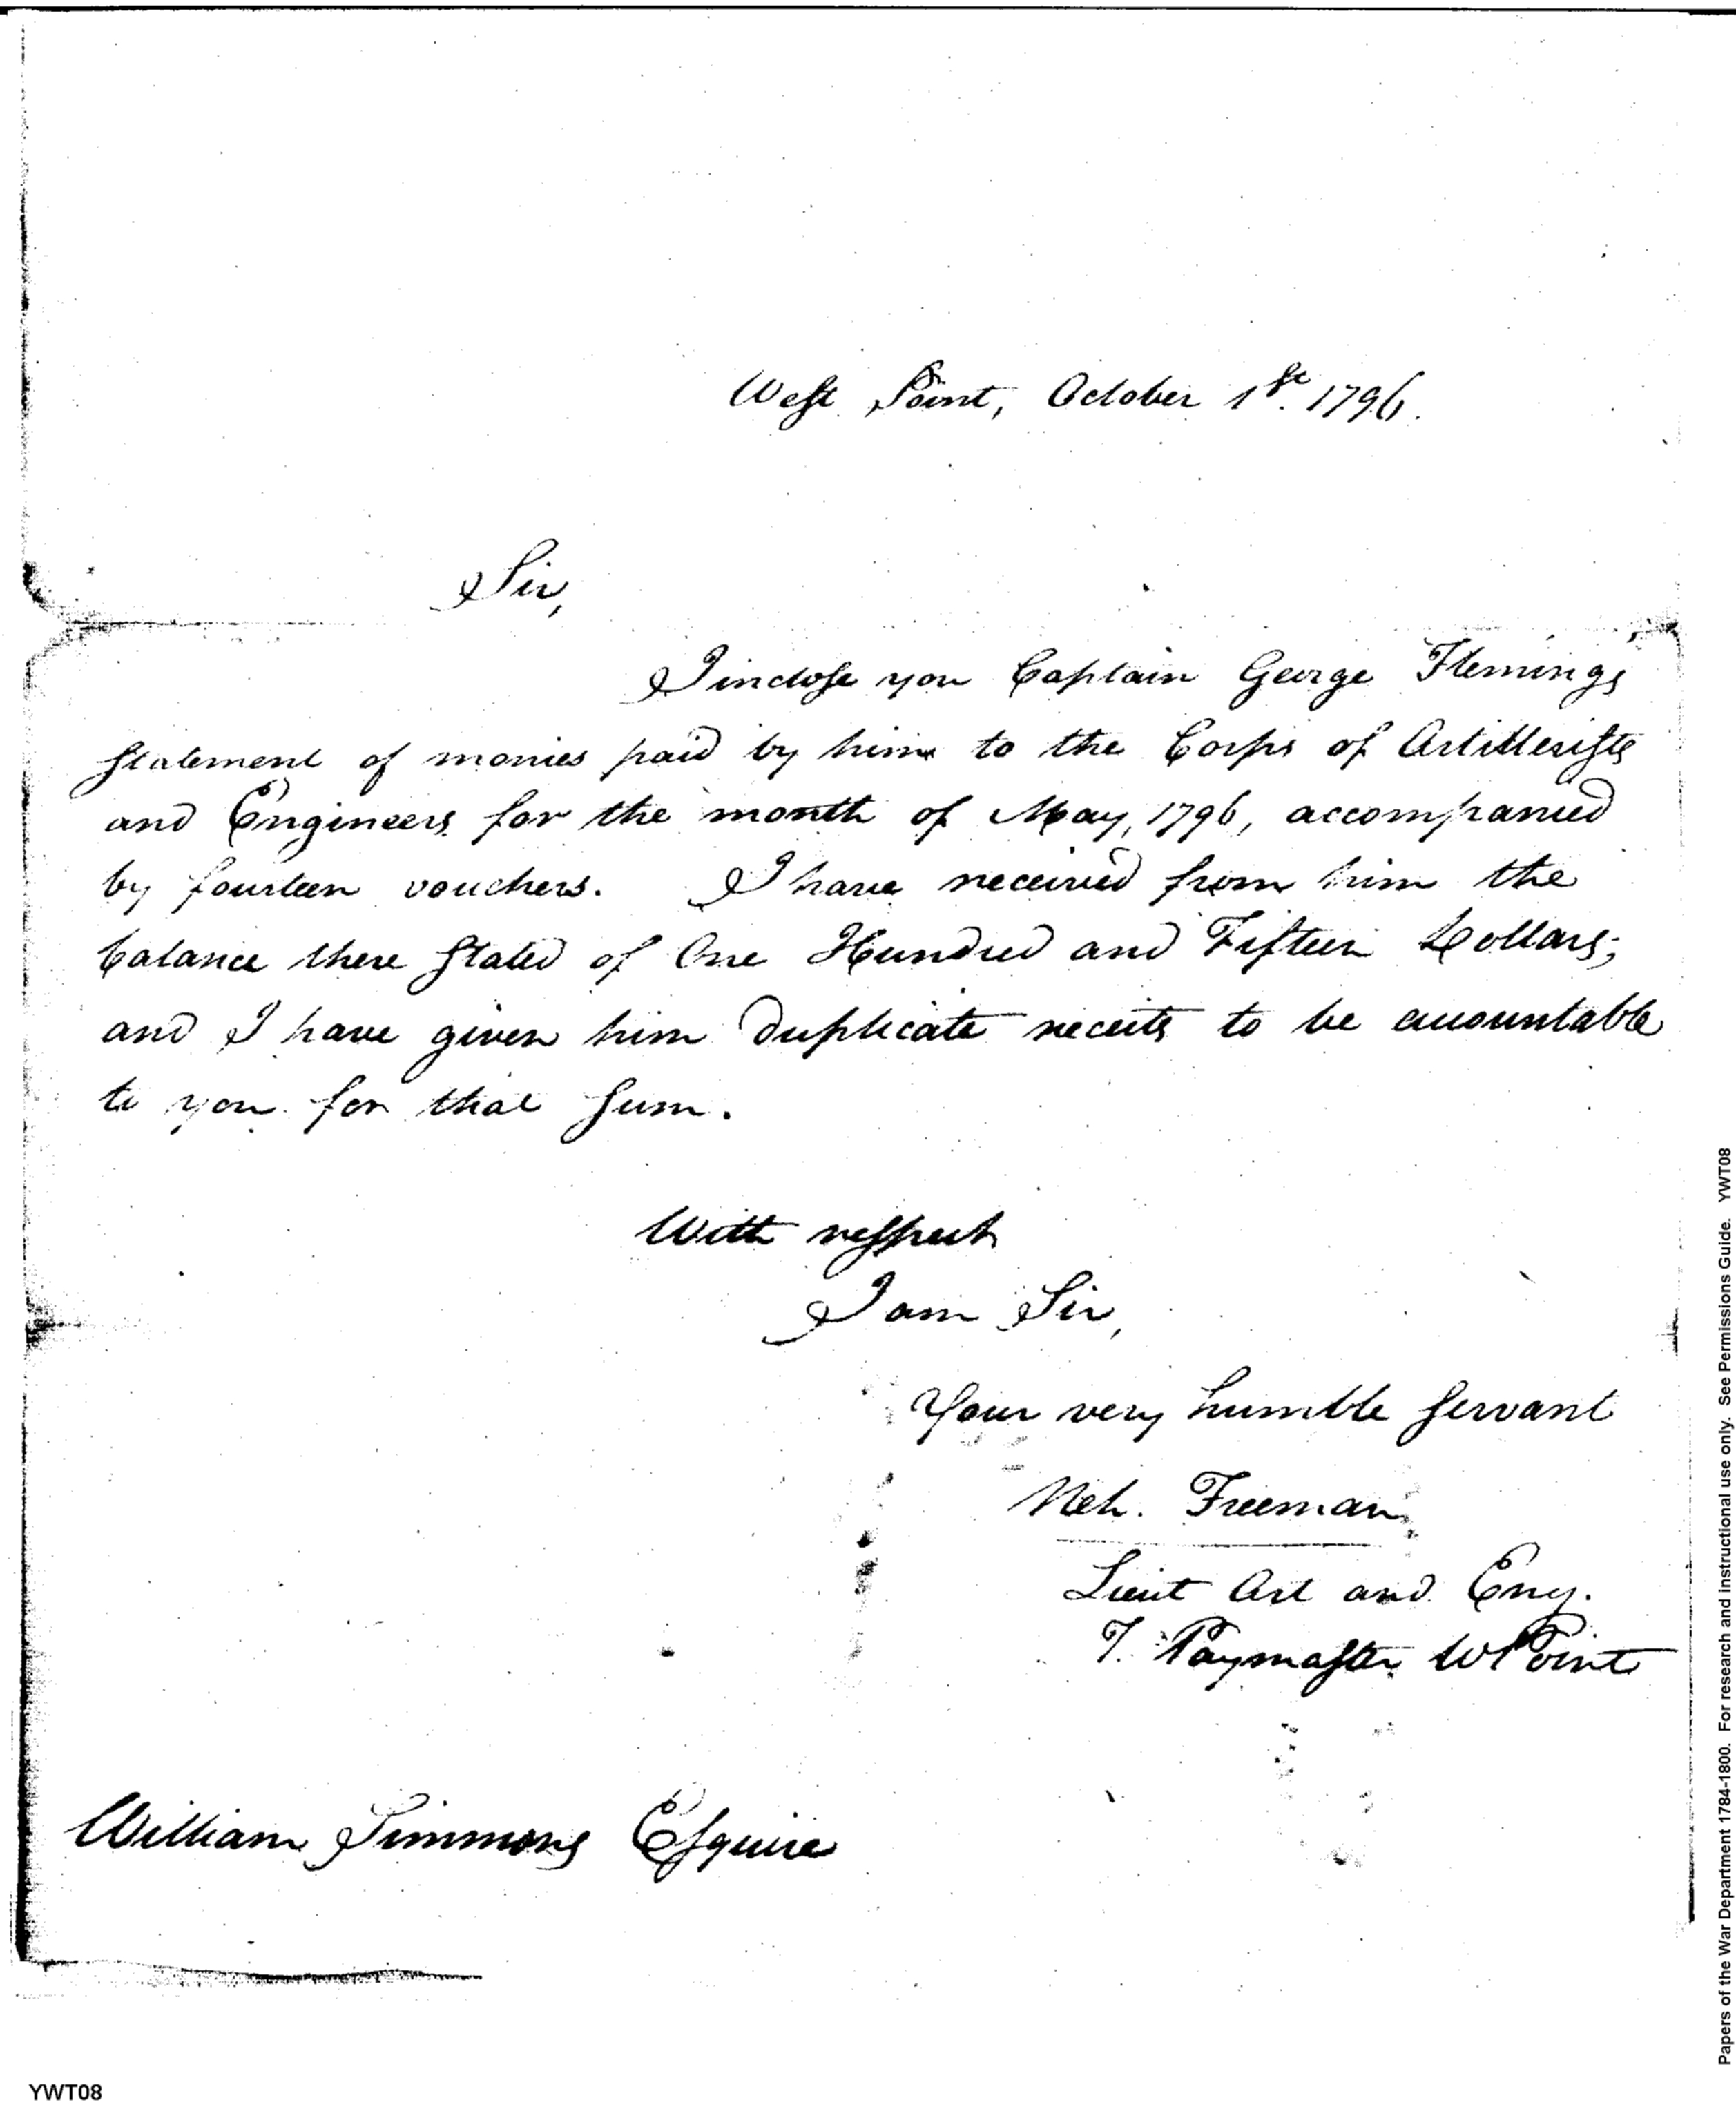 West Point, October 1st. 1796.
Sir,
I inclose you Captain George Flemings
statement of monies paid by him to the Corps of Artillerists
and Engineers for the month of May, 1796, accompanied
by fourteen vouchers. I have received from him the
balance there stated of One Hundred and Fifteen Dollars;
and I have given him duplicate receits to be accountable
to you for that sum.
With respect
I am Sir,
Your very humble servant
Neh. Freeman
Lieut Art and Eng.
T. Paymaster W Point
William Simmons Esquire
YWT08
Papers of the War Department 1784-1800. For research and instructional use only. See Permissions Guide. YWT08